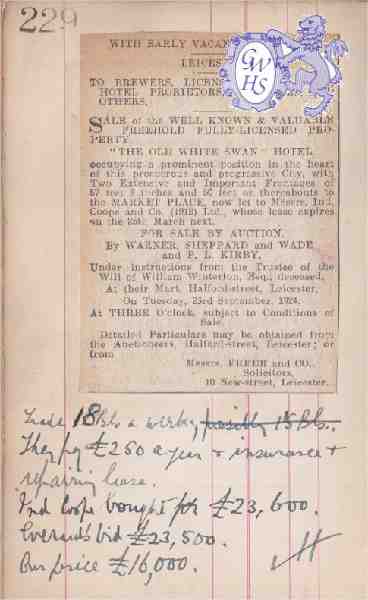 229
WITH EARLY VACAN
LEICES
TO BREWERS, LICENS
HOTEL PROPRIETORS,
OTHERS.
SALE of the WELL KNOWN & VALUABLE
FREEHOLD FULLY-LICENSED PRO-
PERTY
"THE OLD WHITE SWAN" HOTEL
occupying a prominent position in the heart
of this prosperous and progressive City, with
Two Extensive and Important Frontages of
57 feet inches and 50 feet or thereabouts to
the MARKET PLACE, now let to Messrs. Ind,
Coope and Co. (1912) Ltd., whose lease expires
on the 25th March next.
FOR SALE BY AUCTION,
By WARNER, SHEPPARD and WADE
and P. L. KIRBY,
Under instructions from the Trustee of the
Will of William Winterton, Esq., deceased,
At their Mart, Halford-street, Leicester,
On Tuesday, 23rd September, 1924,
At THREE O'clock, subject to Conditions of
Sale.
Detailed Particulars may be obtained from
the Auctioneers, Halford-street, Leicester; or
from
Messrs. FREER and CO.,
Solicitors,
10 New-street, Leicester.
GWHS
Trade 18 Bls a week, possibly 15 Bls.
They pay £250 a year & insurance &
repairing lease.
Ind Coope bought for £23,600.
Everard's bid £23,500.
Our price £16,000.